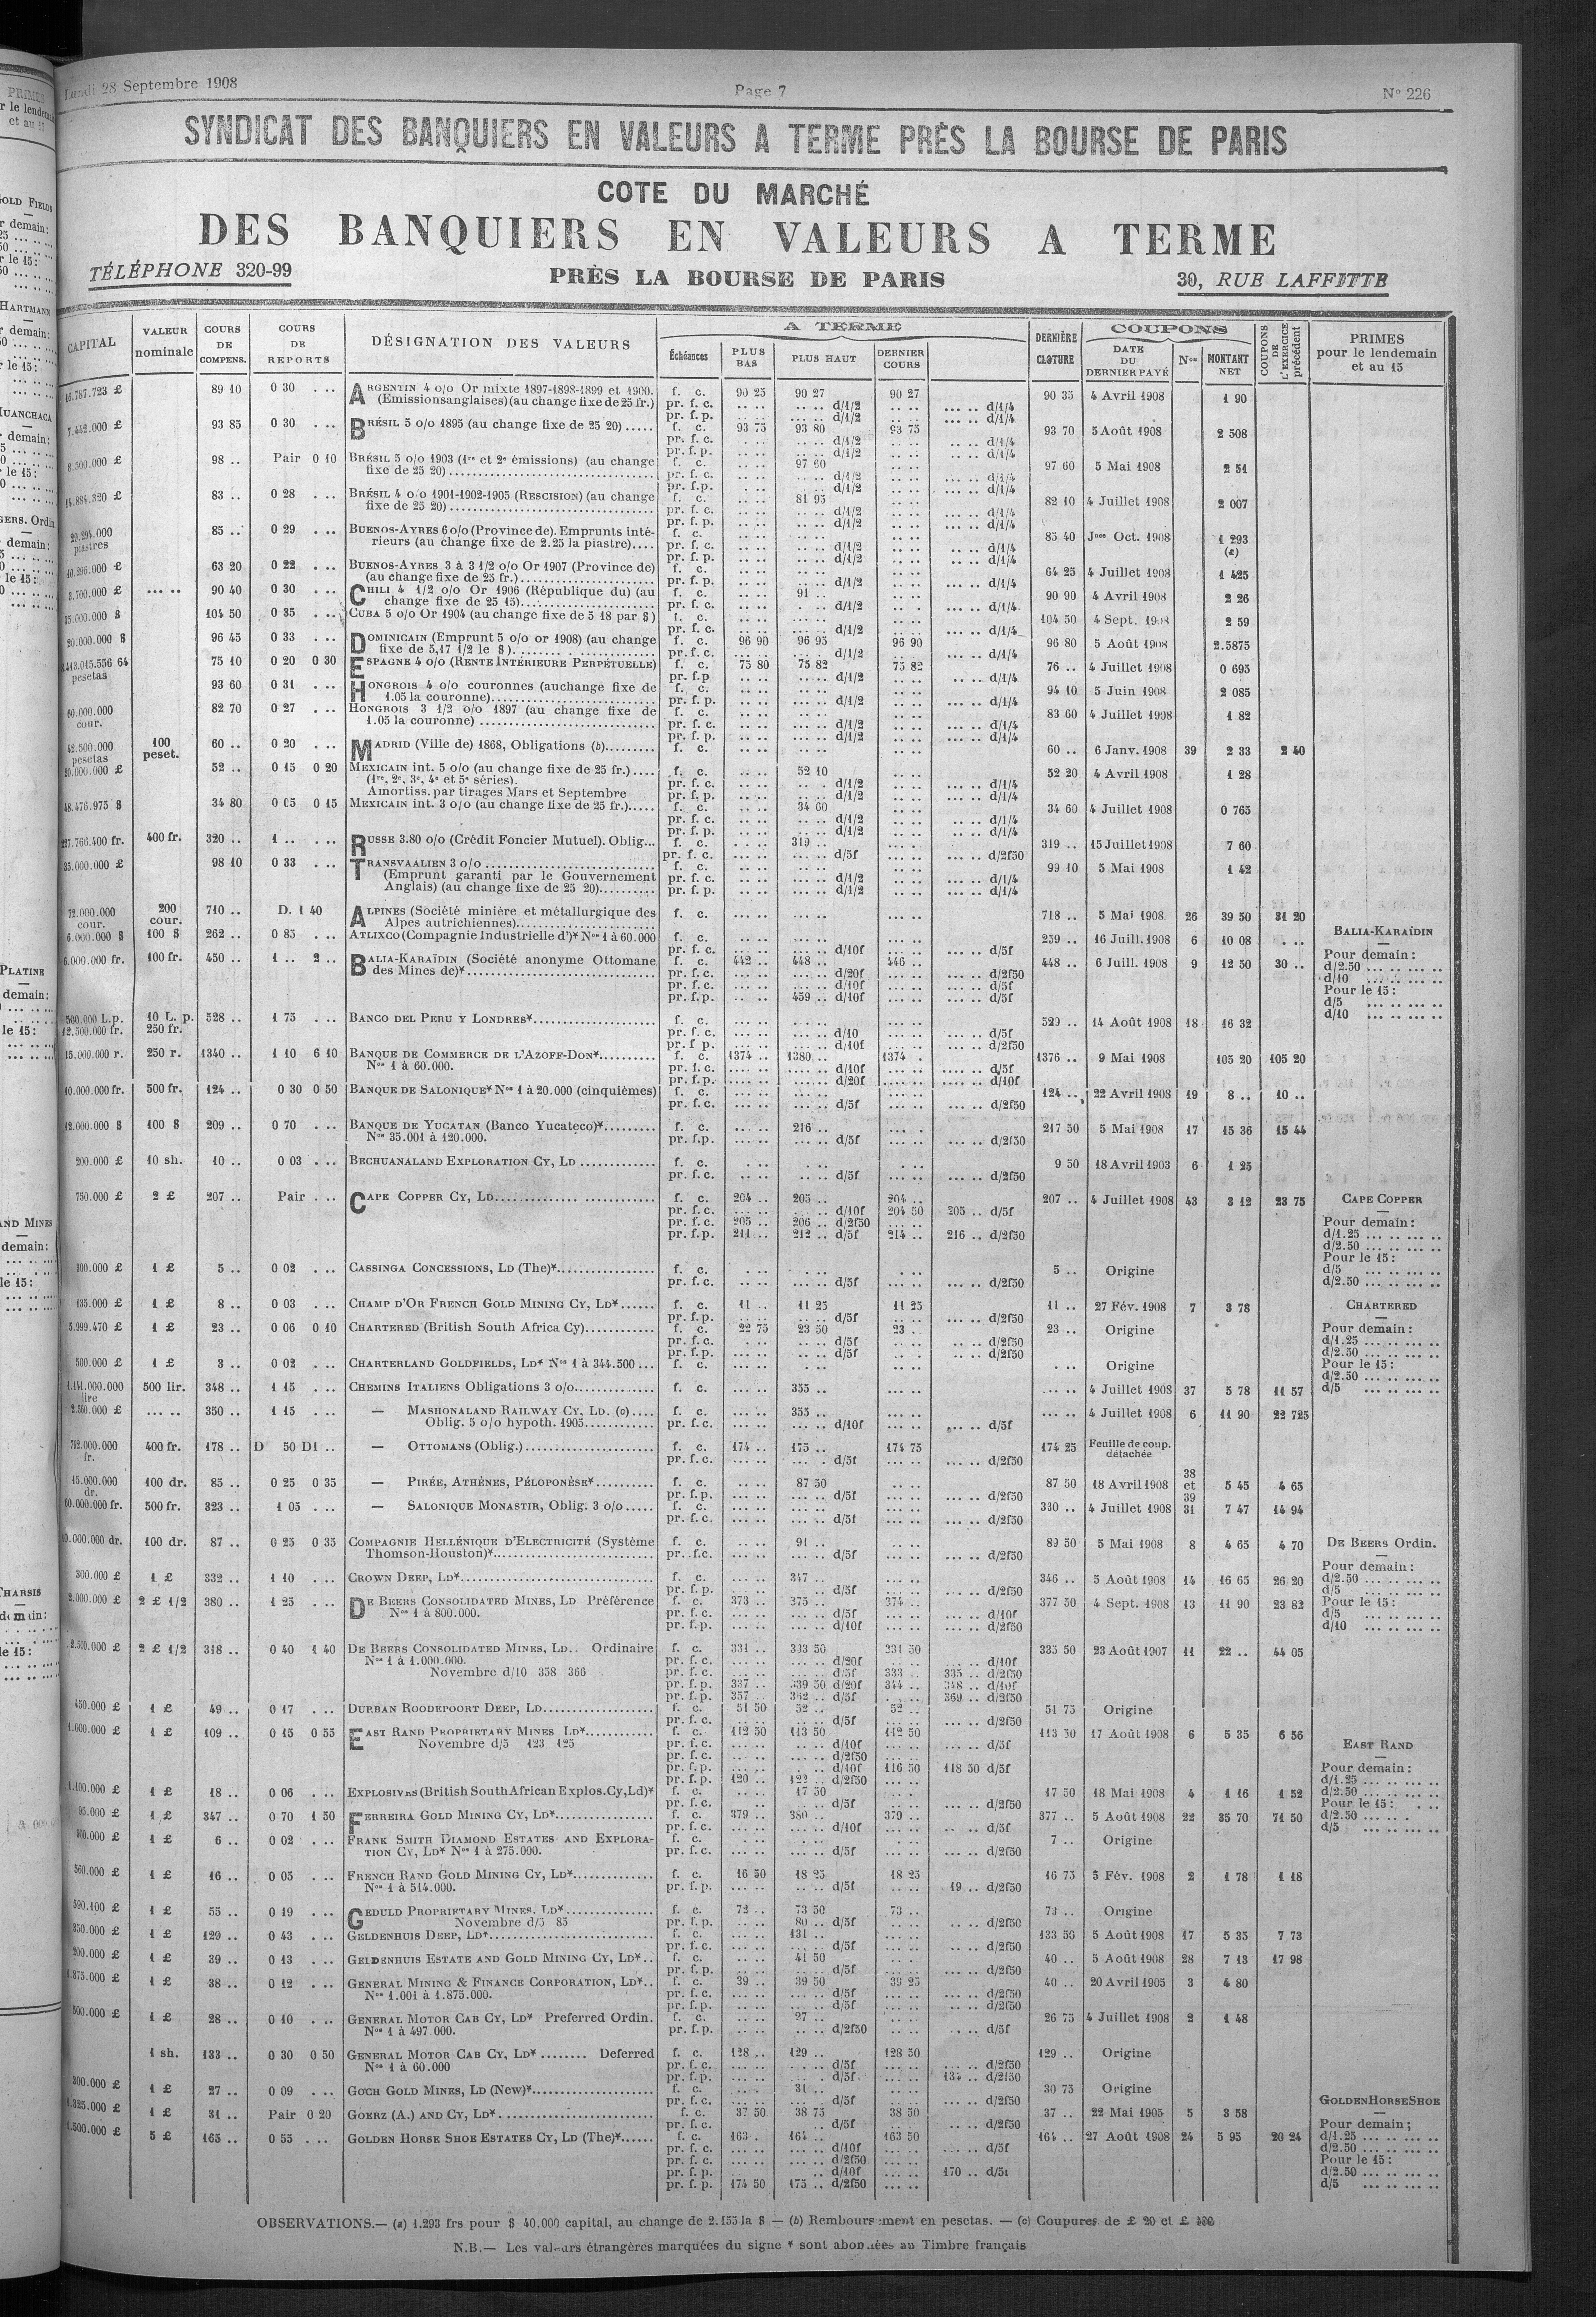 Lundi 28 Septembre 1908 Page 7 N° 226
SYNDICAT DES BANQUIERS EN VALEURS A TERME PRÈS LA BOURSE DE PARIS
COTE DU MARCHÉ
DES BANQUIERS EN VALEURS A TERME
TÉLÉPHONE 320-99 PRÈS LA BOURSE DE PARIS 30, RUE LAFFITTE
CAPITAL VALEUR nominale COURS DE COMPENS. COURS DE REPORTS DÉSIGNATION DES VALEURS A TERME Échéances PLUS BAS PLUS HAUT DERNIER COURS DERNIÈRE CLOTURE COUPONS DATE DU DERNIER PAYÉ Nos MONTANT NET COUPONS DE L'EXERCICE précédent PRIMES pour le lendemain et au 15
16.787.723 £ 89 10 0 30 ARGENTIN 4 o/o Or mixte 1897-1898-1899 et 1900. f. c. 90 25 90 27 90 27 90 35 4 Avril 1908 1 90
(Emissions anglaises) (au change fixe de 25 fr.) pr. f. c. d/1/2 d/1/4
pr. f. p. d/1/2 d/1/4
7.442.000 £ 93 85 0 30 BRÉSIL 5 o/o 1895 (au change fixe de 25 20) f. c. 93 75 93 80 93 75 93 70 5 Août 1908 2 508
8.500.000 £ 98 .. Pair 0 10 BRÉSIL 5 o/o 1903 (1re et 2e émissions) (au change f. c. 97 60 97 60 5 Mai 1908 2 51
fixe de 25 20)
14.884.320 £ 83 .. 0 28 BRÉSIL 4 o/o 1901-1902-1905 (RESCISION) (au change f. c. 81 95 82 10 4 Juillet 1908 2 007
fixe de 25 20)
piastres 85 .. 0 29 BUENOS-AYRES 6 o/o (Province de). Emprunts inté- f. c. 85 40 Jnes Oct. 1908 1 293 (a)
rieurs (au change fixe de 2.25 la piastre)
10.296.000 £ 63 20 0 22 BUENOS-AYRES 3 à 3 1/2 o/o Or 1907 (Province de) f. c. 64 25 4 Juillet 1908 1 425
(au change fixe de 25 fr.)
3.700.000 £ 90 40 0 30 CHILI 4 1/2 o/o Or 1906 (République du) (au f. c. 91 .. 90 90 4 Avril 1908 2 26
change fixe de 25 15)
35.000.000 $ 104 50 0 35 CUBA 5 o/o Or 1904 (au change fixe de 5 18 par $) f. c. 104 50 4 Sept. 1908 2 59
20.000.000 $ 96 45 0 33 DOMINICAIN (Emprunt 5 o/o or 1908) (au change f. c. 96 90 96 95 96 90 96 80 5 Août 1908 2.5875
fixe de 5,17 1/2 le $)
pesetas 75 10 0 20 0 30 ESPAGNE 4 o/o (RENTE INTÉRIEURE PERPÉTUELLE) f. c. 75 80 75 82 75 82 76 .. 4 Juillet 1908 0 695
93 60 0 31 HONGROIS 4 o/o couronnes (au change fixe de f. c. 94 10 5 Juin 1908 2 085
1.05 la couronne)
60.000.000 cour. 82 70 0 27 HONGROIS 3 1/2 o/o 1897 (au change fixe de f. c. 83 60 4 Juillet 1908 1 82
1.05 la couronne)
42.500.000 pesetas 100 peset. 60 .. 0 20 MADRID (Ville de) 1868, Obligations (b) f. c. 60 .. 6 Janv. 1908 39 2 33 2 40
20.000.000 £ 52 .. 0 15 0 20 MEXICAIN int. 5 o/o (au change fixe de 25 fr.) f. c. 52 10 52 20 4 Avril 1908 1 28
(1re, 2e, 3e, 4e et 5e séries).
Amortiss. par tirages Mars et Septembre
48.476.975 $ 34 80 0 05 0 15 MEXICAIN int. 3 o/o (au change fixe de 25 fr.) f. c. 34 60 34 60 4 Juillet 1908 0 765
227.766.400 fr. 400 fr. 320 .. 1 .. RUSSE 3.80 o/o (Crédit Foncier Mutuel). Oblig... f. c. 319 .. 319 .. 15 Juillet 1908 7 60
pr. f. c. d/5f d/2f50
35.000.000 £ 98 10 0 33 TRANSVAALIEN 3 o/o f. c. 99 10 5 Mai 1908 1 42
(Emprunt garanti par le Gouvernement
Anglais) (au change fixe de 25 20)
72.000.000 cour. 200 cour. 710 .. D. 1 40 ALPINES (Société minière et métallurgique des f. c. 718 .. 5 Mai 1908 26 39 50 31 20
Alpes autrichiennes)
6.000.000 $ 100 $ 262 .. 0 85 ATLIXCO (Compagnie Industrielle d')* Nos 1 à 60.000 f. c. 259 .. 16 Juill. 1908 6 10 08
6.000.000 fr. 100 fr. 450 .. 1 .. 2 .. BALIA-KARAÏDIN (Société anonyme Ottomane f. c. 442 .. 448 .. 446 .. 448 .. 6 Juill. 1908 9 12 50 30 ..
des Mines de)* pr. f. c. d/20f d/2f50
pr. f. c. d/10f d/5f
pr. f. p. 459 .. d/10f d/5f
BALIA-KARAÏDIN
Pour demain:
d/2.50
d/10
Pour le 15:
d/5
d/10
500.000 L.p. 10 L. p. 528 .. 1 75 BANCO DEL PERU Y LONDRES* f. c. 529 .. 14 Août 1908 18 16 32
12.500.000 fr. 250 fr.
15.000.000 r. 250 r. 1340 .. 1 10 6 10 BANQUE DE COMMERCE DE L'AZOFF-DON* f. c. 1374 .. 1380 .. 1374 . 1376 .. 9 Mai 1908 105 20 105 20
Nos 1 à 60.000.
10.000.000 fr. 500 fr. 124 .. 0 30 0 50 BANQUE DE SALONIQUE* Nos 1 à 20.000 (cinquièmes) f. c. 124 .. 22 Avril 1908 19 8 .. 10 ..
12.000.000 $ 100 $ 209 .. 0 70 BANQUE DE YUCATAN (Banco Yucateco)* f. c. 216 .. 217 50 5 Mai 1908 17 15 36 15 44
Nos 35.001 à 120.000.
200.000 £ 10 sh. 10 .. 0 03 BECHUANALAND EXPLORATION CY, LD f. c. 9 50 18 Avril 1903 6 1 25
750.000 £ 2 £ 207 .. Pair CAPE COPPER CY, LD f. c. 204 .. 205 .. 204 .. 207 .. 4 Juillet 1908 43 3 12 23 75
pr. f. c. d/10f 204 50 205 .. d/5f
pr. f. c. 205 .. 206 .. d/2f50
pr. f. p. 211 .. 212 .. d/5f 214 .. 216 .. d/2f50
CAPE COPPER
Pour demain:
d/1.25
d/2.50
Pour le 15:
d/5
d/2.50
300.000 £ 1 £ 5 .. 0 02 CASSINGA CONCESSIONS, LD (The)* f. c. 5 .. Origine
135.000 £ 1 £ 8 .. 0 03 CHAMP D'OR FRENCH GOLD MINING CY, LD* f. c. 11 .. 11 25 11 25 11 .. 27 Fév. 1908 7 3 78
5.999.470 £ 1 £ 23 .. 0 06 0 10 CHARTERED (British South Africa Cy) f. c. 22 75 23 50 23 .. 23 .. Origine
CHARTERED
Pour demain:
d/1.25
d/2.50
Pour le 15:
d/2.50
d/5
500.000 £ 1 £ 3 .. 0 02 CHARTERLAND GOLDFIELDS, LD* Nos 1 à 344.500 f. c. Origine
lire 500 lir. 348 .. 1 15 CHEMINS ITALIENS Obligations 3 o/o f. c. 355 .. 4 Juillet 1908 37 5 78 11 57
2.560.000 £ 350 .. 1 15 — MASHONALAND RAILWAY CY, LD. (c) f. c. 355 .. 4 Juillet 1908 6 11 90 22 725
Oblig. 5 o/o hypoth. 1905 pr. f. c. d/10f d/5f
fr. 400 fr. 178 .. D 50 D1 .. — OTTOMANS (Oblig.) f. c. 174 .. 175 .. 174 75 174 25 Feuille de coup. détachée
15.000.000 dr. 100 dr. 85 .. 0 25 0 35 — PIRÉE, ATHÈNES, PÉLOPONÈSE* f. c. 87 50 87 50 18 Avril 1908 38 et 39 5 45 4 65
60.000.000 fr. 500 fr. 323 .. 1 05 — SALONIQUE MONASTIR, Oblig. 3 o/o f. c. 330 .. 4 Juillet 1908 31 7 47 14 94
100 dr. 87 .. 0 25 0 35 COMPAGNIE HELLÉNIQUE D'ELECTRICITÉ (Système f. c. 91 .. 89 50 5 Mai 1908 8 4 65 4 70
Thomson-Houston)*
300.000 £ 1 £ 332 .. 1 10 CROWN DEEP, LD* f. c. 347 346 .. 5 Août 1908 14 16 65 26 20
2.000.000 £ 2 £ 1/2 380 .. 1 25 DE BEERS CONSOLIDATED MINES, LD Préférence f. c. 373 .. 375 .. 374 .. 377 50 4 Sept. 1908 13 11 90 23 82
Nos 1 à 800.000.
DE BEERS Ordin.
Pour demain:
d/2.50
d/5
Pour le 15:
d/5
d/10
2.500.000 £ 2 £ 1/2 318 .. 0 40 1 40 DE BEERS CONSOLIDATED MINES, LD.. Ordinaire f. c. 331 .. 333 50 331 50 335 50 23 Août 1907 11 22 .. 44 05
Nos 1 à 1.000.000. pr. f. c. d/20f d/10f
Novembre d/10 358 366 pr. f. c. d/5f 333 .. 335 .. d/2f50
pr. f. p. 337 .. 339 50 d/20f 344 .. 348 .. d/10f
pr. f. p. 357 362 .. d/5f 369 .. d/2f50
450.000 £ 1 £ 49 .. 0 17 DURBAN ROODEPOORT DEEP, LD f. c. 51 50 52 .. 52 .. 51 75 Origine
1.000.000 £ 1 £ 109 .. 0 15 0 55 EAST RAND PROPRIETARY MINES LD* f. c. 112 50 113 50 112 50 113 50 17 Août 1908 6 5 35 6 56
Novembre d/5 123 125 pr. f. c. d/10f d/5f
pr. f. c. d/2f50
pr. f. p. d/10f 116 50 118 50 d/5f
pr. f. p. 120 .. 122 .. d/2f50
EAST RAND
Pour demain:
d/1.25
d/2.50
Pour le 15:
d/2.50
d/5
1.100.000 £ 1 £ 18 .. 0 06 EXPLOSIVES (British South African Explos. Cy, Ld)* f. c. 17 50 17 50 18 Mai 1908 4 1 16 1 52
95.000 £ 1 £ 347 .. 0 70 1 50 FERREIRA GOLD MINING CY, LD* f. c. 379 .. 380 .. 379 .. 377 .. 5 Août 1908 22 35 70 71 50
300.000 £ 1 £ 6 .. 0 02 FRANK SMITH DIAMOND ESTATES AND EXPLORA- f. c. 7 .. Origine
TION CY, LD* Nos 1 à 275.000.
560.000 £ 1 £ 16 .. 0 05 FRENCH RAND GOLD MINING CY, LD* f. c. 16 50 18 25 18 25 16 75 5 Fév. 1908 2 1 78 1 18
Nos 1 à 514.000. pr. f. p. d/5f 19 .. d/2f50
590.100 £ 1 £ 55 .. 0 19 GEDULD PROPRIETARY MINES, LD* f. c. 72 .. 73 50 73 .. 73 .. Origine
Novembre d/5 85 pr. f. p. 80 .. d/5f d/2f50
350.000 £ 1 £ 129 .. 0 43 GELDENHUIS DEEP, LD* f. c. 131 .. 133 50 5 Août 1908 17 5 35 7 73
200.000 £ 1 £ 39 .. 0 13 GELDENHUIS ESTATE AND GOLD MINING CY, LD* f. c. 41 50 40 .. 5 Août 1908 28 7 13 17 98
1.875.000 £ 1 £ 38 .. 0 12 GENERAL MINING & FINANCE CORPORATION, LD* f. c. 39 .. 39 50 39 25 40 .. 20 Avril 1905 3 4 80
Nos 1.001 à 1.875.000.
500.000 £ 1 £ 28 .. 0 10 GENERAL MOTOR CAB CY, LD* Preferred Ordin. f. c. 27 .. 26 75 4 Juillet 1908 2 1 48
Nos 1 à 497.000. pr. f. p. d/2f50 d/5f
1 sh. 133 .. 0 30 0 50 GENERAL MOTOR CAB CY, LD* Deferred f. c. 128 .. 129 .. 128 50 129 .. Origine
Nos 1 à 60.000 pr. f. c. d/5f d/2f50
pr. f. p. d/5f 134 .. d/2f50
300.000 £ 1 £ 27 .. 0 09 GOCH GOLD MINES, LD (New)* f. c. 31 .. 30 75 Origine
1 £ 31 .. Pair 0 20 GOERZ (A.) AND CY, LD* f. c. 37 50 38 75 38 50 37 .. 22 Mai 1905 5 3 58
1.500.000 £ 5 £ 165 .. 0 55 GOLDEN HORSE SHOE ESTATES CY, LD (The)* f. c. 163 . 164 .. 163 50 164 .. 27 Août 1908 24 5 95 20 24
pr. f. c. d/10f d/5f
pr. f. c. d/2f50
pr. f. p. d/10f 170 .. d/5f
pr. f. p. 174 50 175 .. d/2f50
GOLDEN HORSE SHOE
Pour demain;
d/1.25
d/2.50
Pour le 15:
d/2.50
d/5
OBSERVATIONS.— (a) 1.293 frs pour $ 40.000 capital, au change de 2.155 la $ — (b) Remboursement en pesetas. — (c) Coupures de £ 20 et £ 100
N.B.— Les valeurs étrangères marquées du signe * sont abonnées au Timbre français